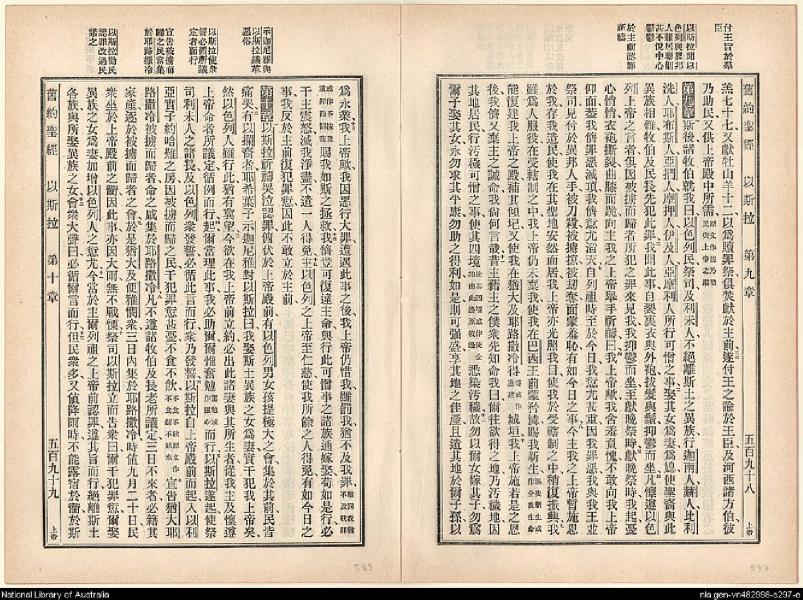 付王旨於羣臣
以斯拉聞以色列與異邦人雜居聯姻其不悅中心鬱鬱
於主前認罪祈禱
舊約聖經 以斯拉 第九章 五百九十八 上帝
羔七十七又獻牡山羊十二以爲贖罪祭俱焚獻於主前遂付王之諭於王臣及河西諸方伯彼
乃助民又供上帝殿中所需
第九章斯後諸牧伯就我曰以色列民祭司及利未人不絕離斯土之異族行迦南人赫人比利
洗人耶布斯人亞捫人摩押人伊及人亞摩利人所行可憎之事娶其女爲妻爲媳使聖裔與此
異族相雜牧伯及民長先犯此罪我聞此事自裂裏衣與外袍拔髮與鬚抑鬱而坐凡懷遵以色
列上帝之言者俱因被擄而歸者所犯之罪來見我我抑鬱而坐至獻晚祭時獻晚祭時我起憂
心惛惛衣袍撕裂曲膝而跪向主我之上帝舉手祈禱曰我上帝歟我含羞負愧不敢向我上帝
仰面蓋我儕罪愆滅頂我儕愆尤滔天自列祖時至於今日我愆尤甚重因我罪愆我與我王並
祭司見付於異邦人手被刀殺被擄掠被刧奪面蒙羞恥有如今日之事今主我之上帝暫施恩
於我存我遺民使我在其聖地安然而居我上帝亦光照我目使我於受轄制之中稍復振興我
雖爲人服役在受轄制之中我上帝仍未棄我使我在巴西王前蒙矜恤賜我新生
能復建我上帝之殿補其傾圮又使我在猶大及耶路撒冷得城垣我上帝施若是之恩
後我儕又棄主之誡命我尚何言哉昔主藉主之僕衆先知命我曰爾往欲得之地乃汚穢因
其地居民行汚穢可憎之事使其四境悉染汚穢故勿以爾女嫁其子勿爲
爾子娶其女永勿求其平康勿助之得利如是則可強盛享其地之佳產且遺其地於爾子孫以
597
示迦尼雅與以斯拉議革惡俗
以斯拉使衆誓必循所議定者而行
宣告被擄而歸之民當集於耶路撒冷
以斯拉勸民認罪改過民聽之
爲永業我上帝歟我因惡行大罪遭遇此事之後我上帝仍惜我雖罰我猶不及我罪
賜我如斯之拯救我儕豈可復違主命與行此可憎事之諸族通嫁娶苟如是行必
干主震怒滅我淨盡不遺一人得免主以色列之上帝至仁慈使我所餘之人得免有如今日之
事我反於主前復犯罪愆因此不敢立於主前
第十章以斯拉祈禱哭泣認罪俯伏於上帝殿前有以色列男女孩提極大之會集於其前民皆
痛哭有以攔裔耶希葉子示迦尼雅對以斯拉曰我娶斯土異族之女爲妻實干犯我上帝矣
然以色列人雖行此猶有冀望今欲在我上帝前立約必出此諸妻與其所生者從我主及懷遵
上帝命者所議定循例而行起爾當理此事我必助爾爾惟奮勉而行以斯拉遂起使祭
司利未人之諸長及以色列衆發誓必循此言而行衆乃發誓以斯拉自上帝殿前而起入以利
亞實子約哈難之房因被擄而歸之民干犯罪愆甚憂不食不飲宣告猶大耶
路撒冷被擄而歸者命之咸集於耶路撒冷凡不遵諸牧伯及長老所議定三日不來者必籍其
家產逐於被擄而歸者之會於是猶大及便雅憫衆三日內集於耶路撒冷時値九月二十日民
衆坐於上帝殿前之衢因此事亦因大雨無不戰慄祭司以斯拉立而告衆曰爾干犯罪愆爾娶
異族之女爲妻加增以色列人之愆尤今當於主爾列祖之上帝前認罪遵其旨而行絕離斯土
各族與所娶異族之女會衆大聲曰必循爾言而行但民衆多又値降雨時不能露宿於衢於斯
舊約聖經 以斯拉 第十章 五百九十九 上帝
588
National Library of Australia
nla.gen-vn482998-s297-e